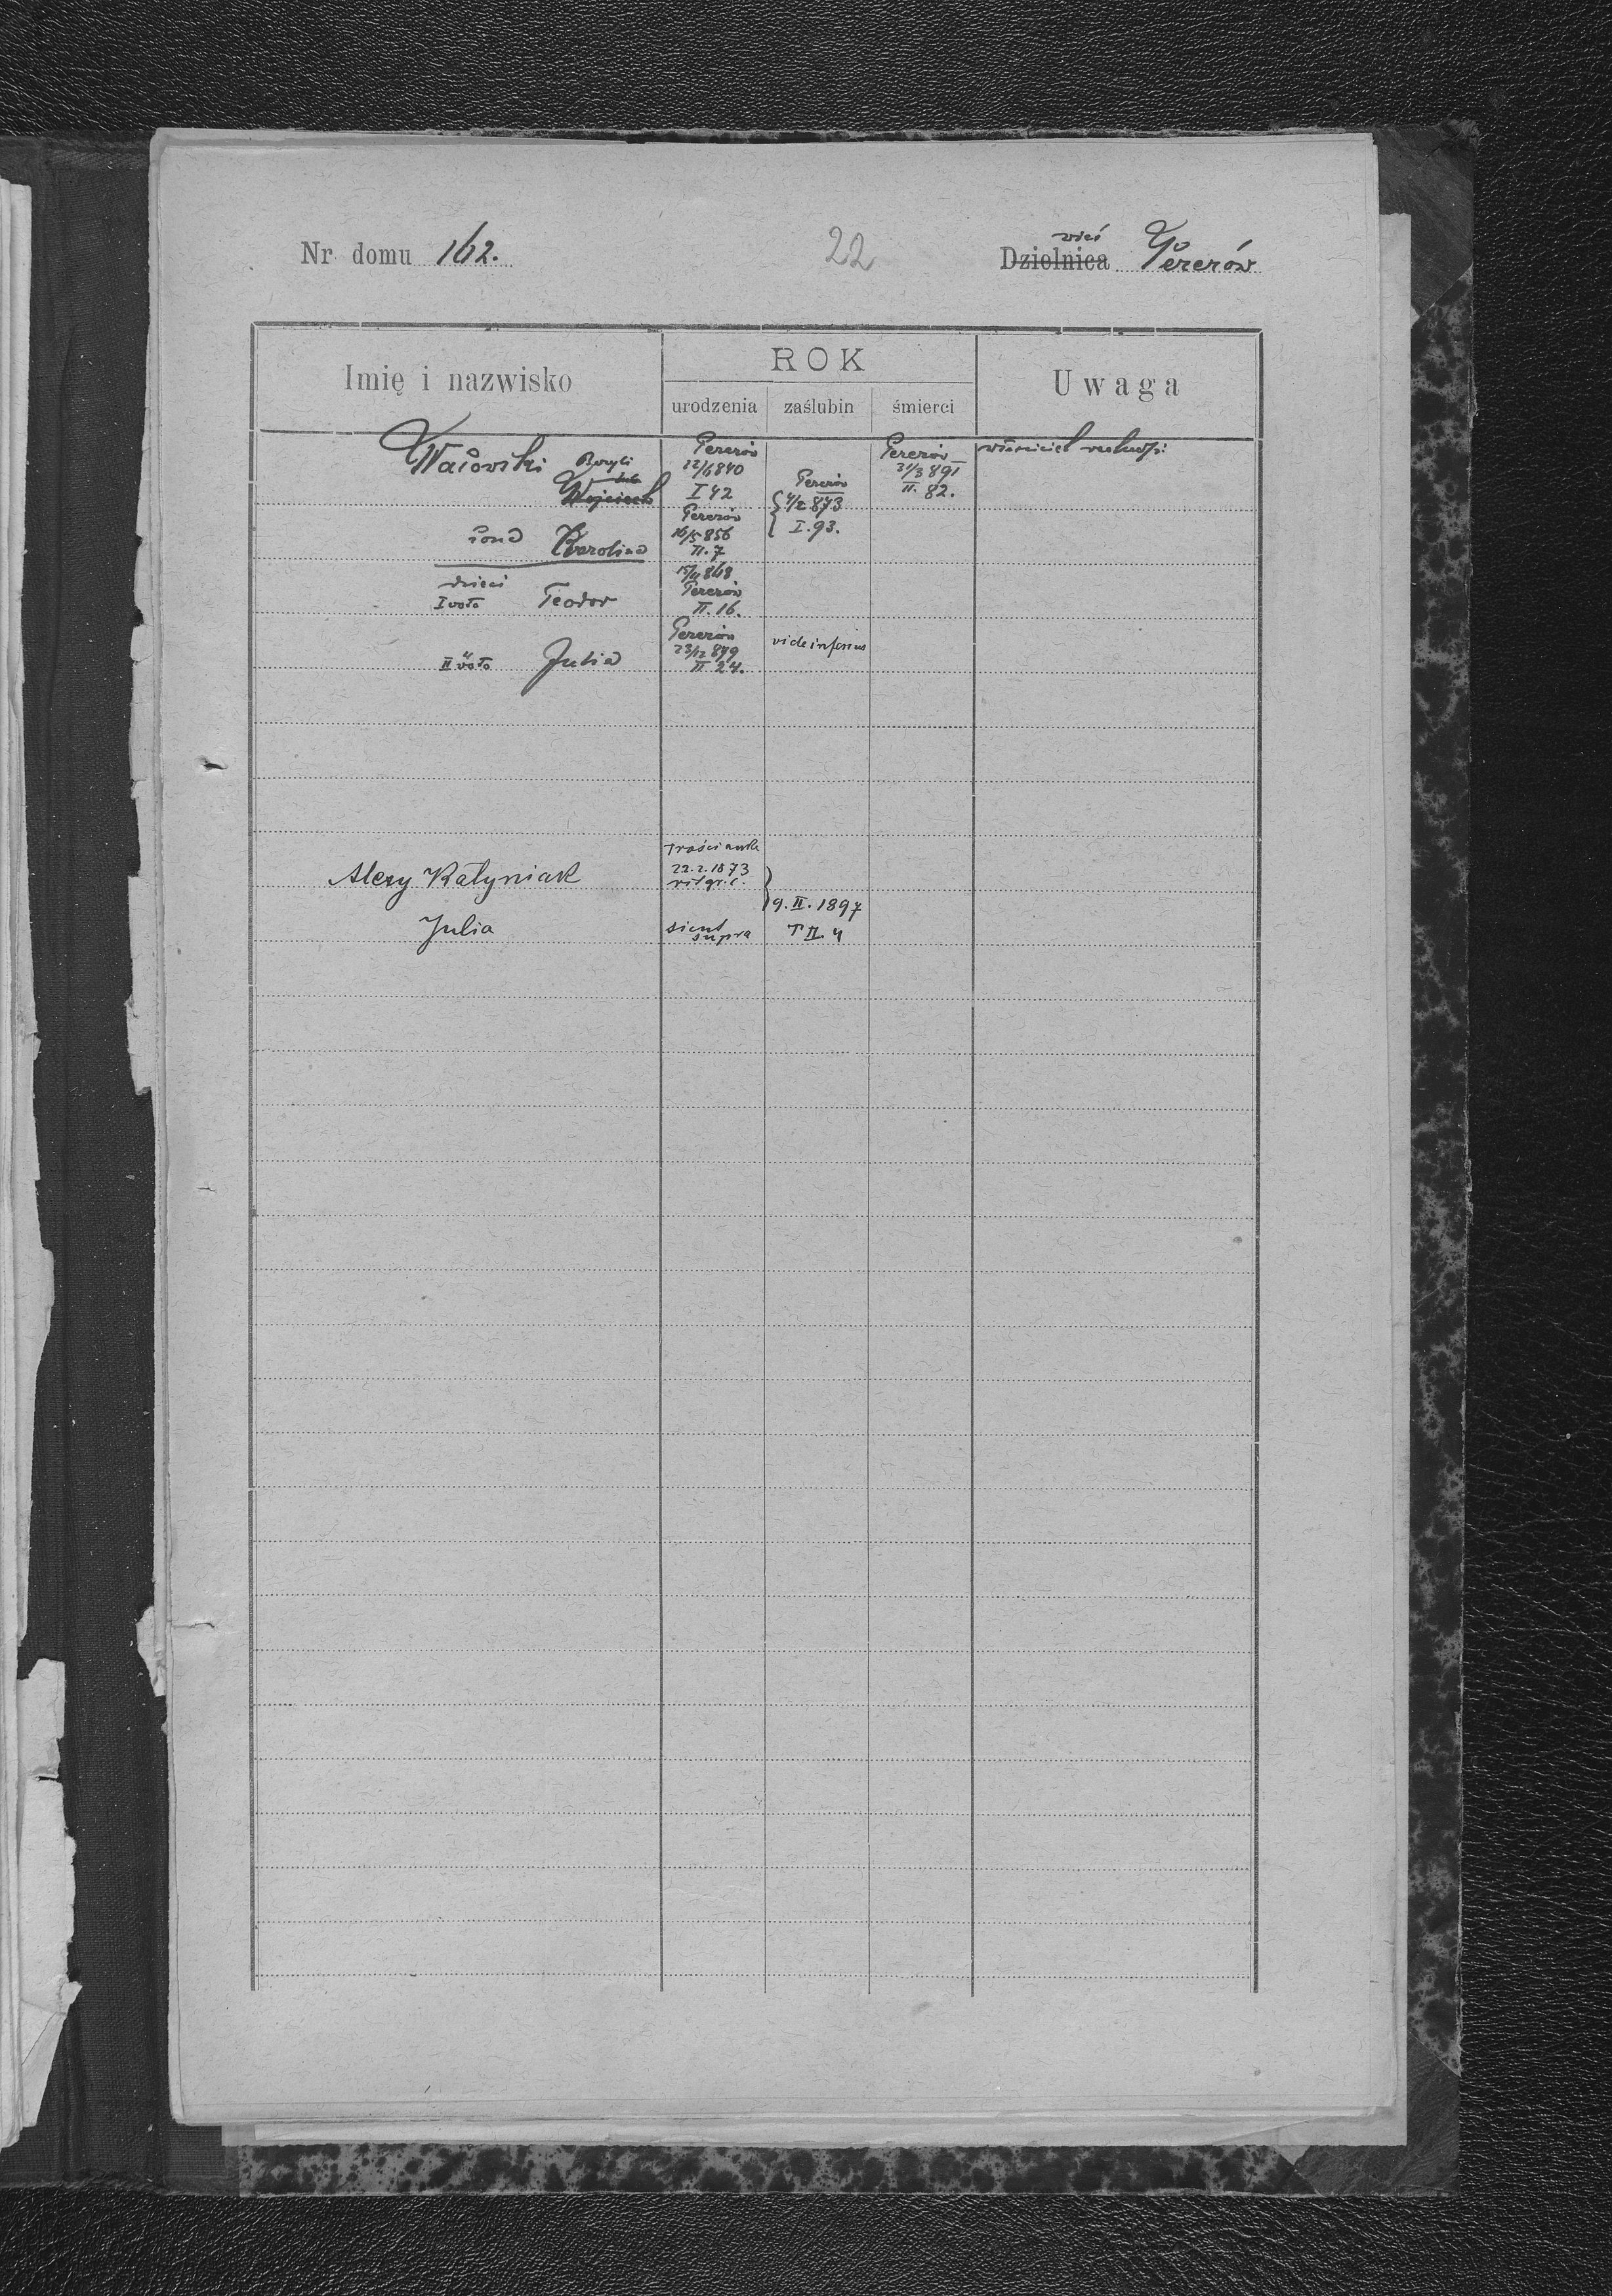 Nr domu 162. 22 wieś Dzielnica Pererów
ROK
Imię i nazwisko Uwaga
urodzenia zaślubin śmierci
Pererów Pererów właściciel realności
Bazyli 22/6 840 31/3 891
Wojciech I 42 Pererów II. 82.
Pererów 4/2 873
żona Karolina 16/5 856 I. 93.
II. 7
dzieci 15/11 868
I voto Teodor Pererów
II. 16.
Pererów vide inferius
II voto Julia 23/12 879
II 24.
Trościanka
Alexy Kałyniak 22.2.1873
rit gr. c.
9. II. 1897
Julia sicut supra T II. 4